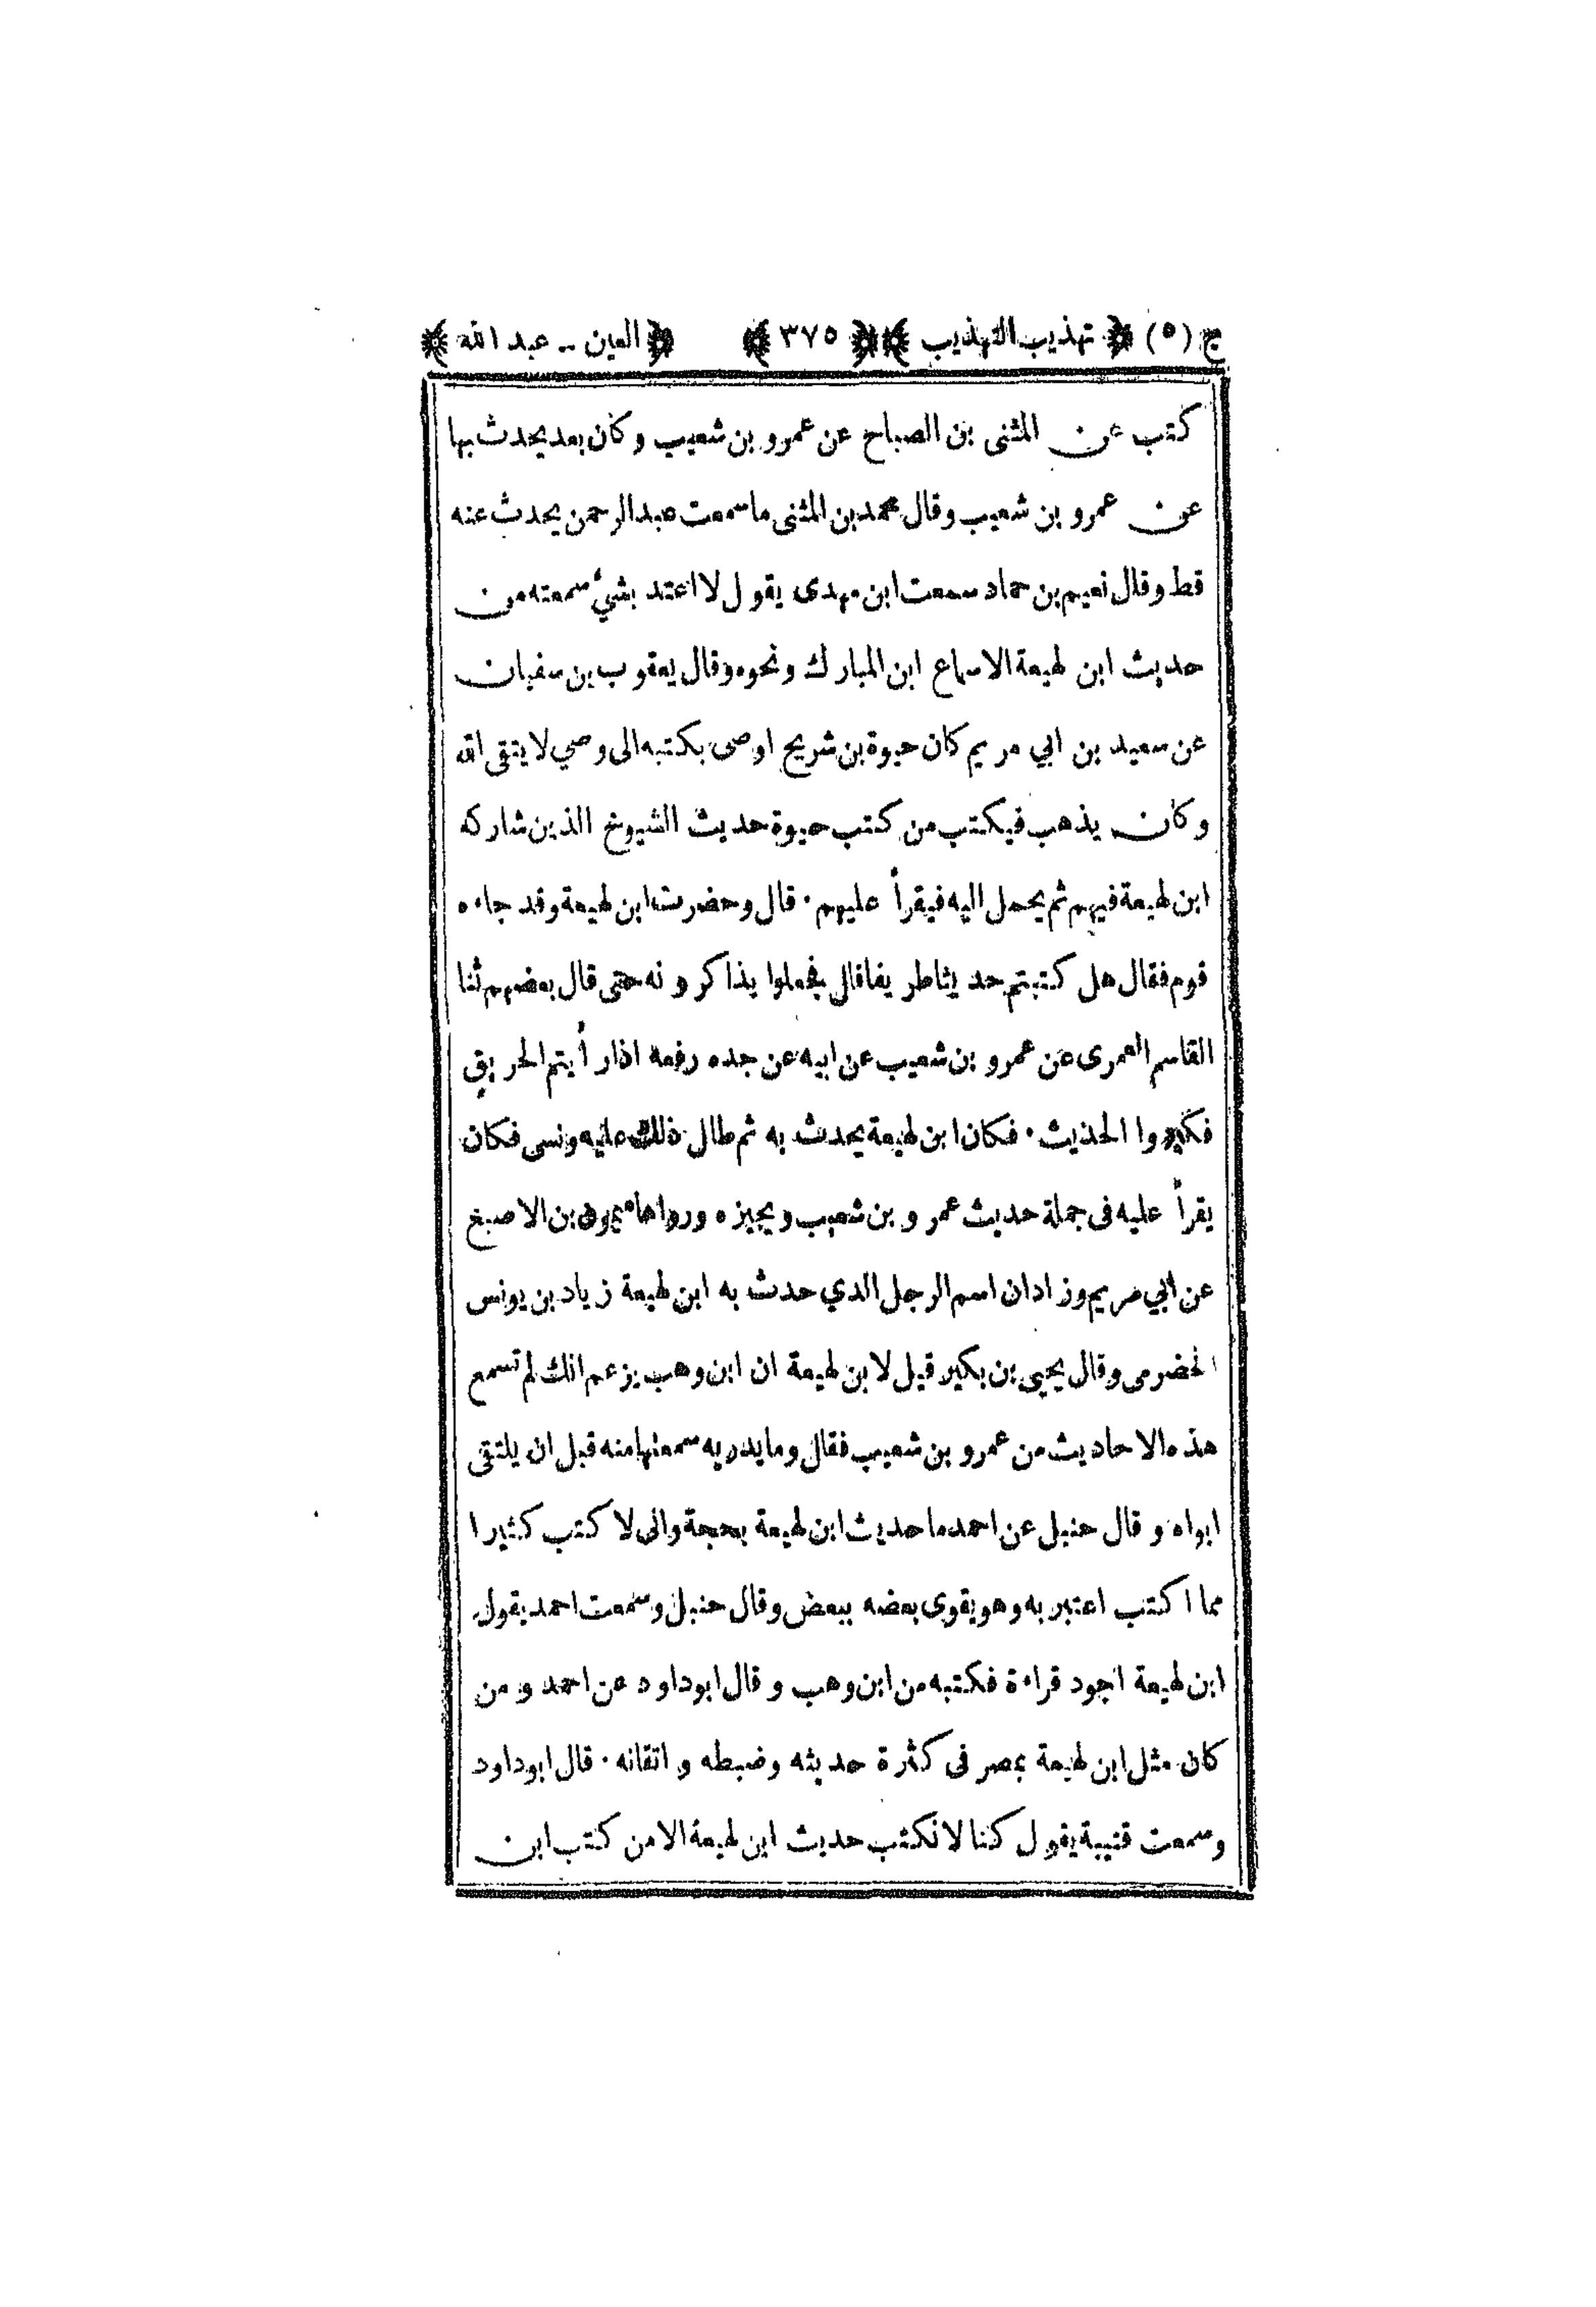 ج (٥) ﴿ تهذيب التهذيب ﴾ ﴿ ٣٧٥ ﴾ ﴿ العين -- عبد الله ﴾
كتب عن المثنى بن الصباح عن عمرو بن شعيب وكان بعد يحدث بها
عن عمرو بن شعيب وقال محمد بن المثنى ما سمعت عبد الرحمن يحدث عنه
قط وقال نعيم بن حماد سمعت ابن مهدى يقول لا اعتد بشيء سمعته من
حديث ابن لهيعة الا سماع ابن المبارك ونحوه وقال يعقوب بن سفيان
عن سعيد بن ابي مريم كان حيوة بن شريح اوصى بكتبه الى وصي لا يتقى الله
وكان يذهب فيكتب من كتب حيوة حديث الشيوخ الذين شاركه
ابن لهيعة فيهم ثم يحمل اليه فيقرأ عليهم · قال وحضرت ابن لهيعة وقد جاءه
قوم فقال هل كتبتم حديثا طريفا قال فجعلوا يذاكرونه حتى قال بعضهم ثنا
القاسم العمرى عن عمرو بن شعيب عن ابيه عن جده رفعه اذا رأيتم الحريق
فكبروا الحديث · فكان ابن لهيعة يحدث به ثم طال ذلك عليه ونسى فكان
يقرأ عليه فى جملة حديث عمرو بن شعيب ويجيزه ورواها ميمون بن الاصبغ
عن ابي مريم وزاد ان اسم الرجل الذي حدث به ابن لهيعة زياد بن يونس
الحضرمى وقال يحيى بن بكير قيل لابن لهيعة ان ابن وهب يزعم انك لم تسمع
هذه الاحاديث من عمرو بن شعيب فقال وما يدريه سمعتها منه قبل ان يلتقى
ابواه وقال حنبل عن احمد ما حديث ابن لهيعة بحجة وانى لا كتب كثيرا
مما اكتب اعتبر به وهو يقوى بعضه ببعض وقال حنبل وسمعت احمد يقول
ابن لهيعة اجود قراءة فكتبه من ابن وهب وقال ابو داود عن احمد ومن
كان مثل ابن لهيعة بمصر فى كثرة حديثه وضبطه واتقانه · قال ابو داود
وسمعت قتيبة يقول كنا لا نكتب حديث ابن لهيعة الا من كتب ابن